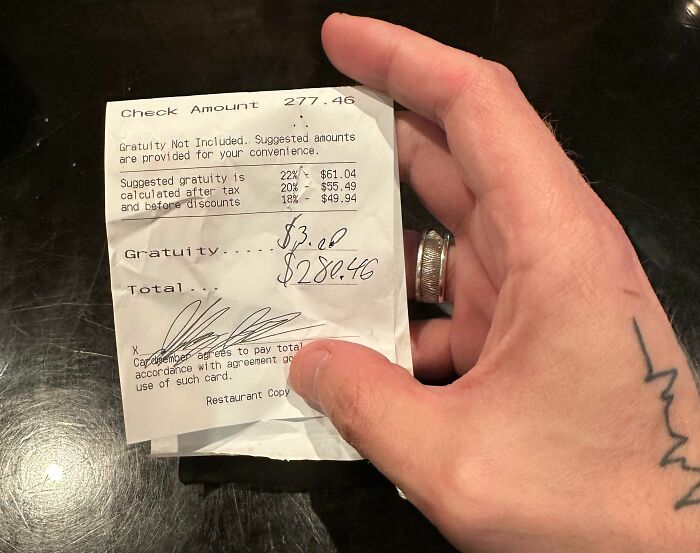 Check Amount 277.46
Gratuity Not Included. Suggested amounts
are provided for your convenience.
Suggested gratuity is 22% - $61.04
calculated after tax 20% - $55.49
and before discounts 18% - $49.94
Gratuity..... $3.00
Total... $280.46
X
Cardmember agrees to pay total
accordance with agreement go
use of such card.
Restaurant Copy